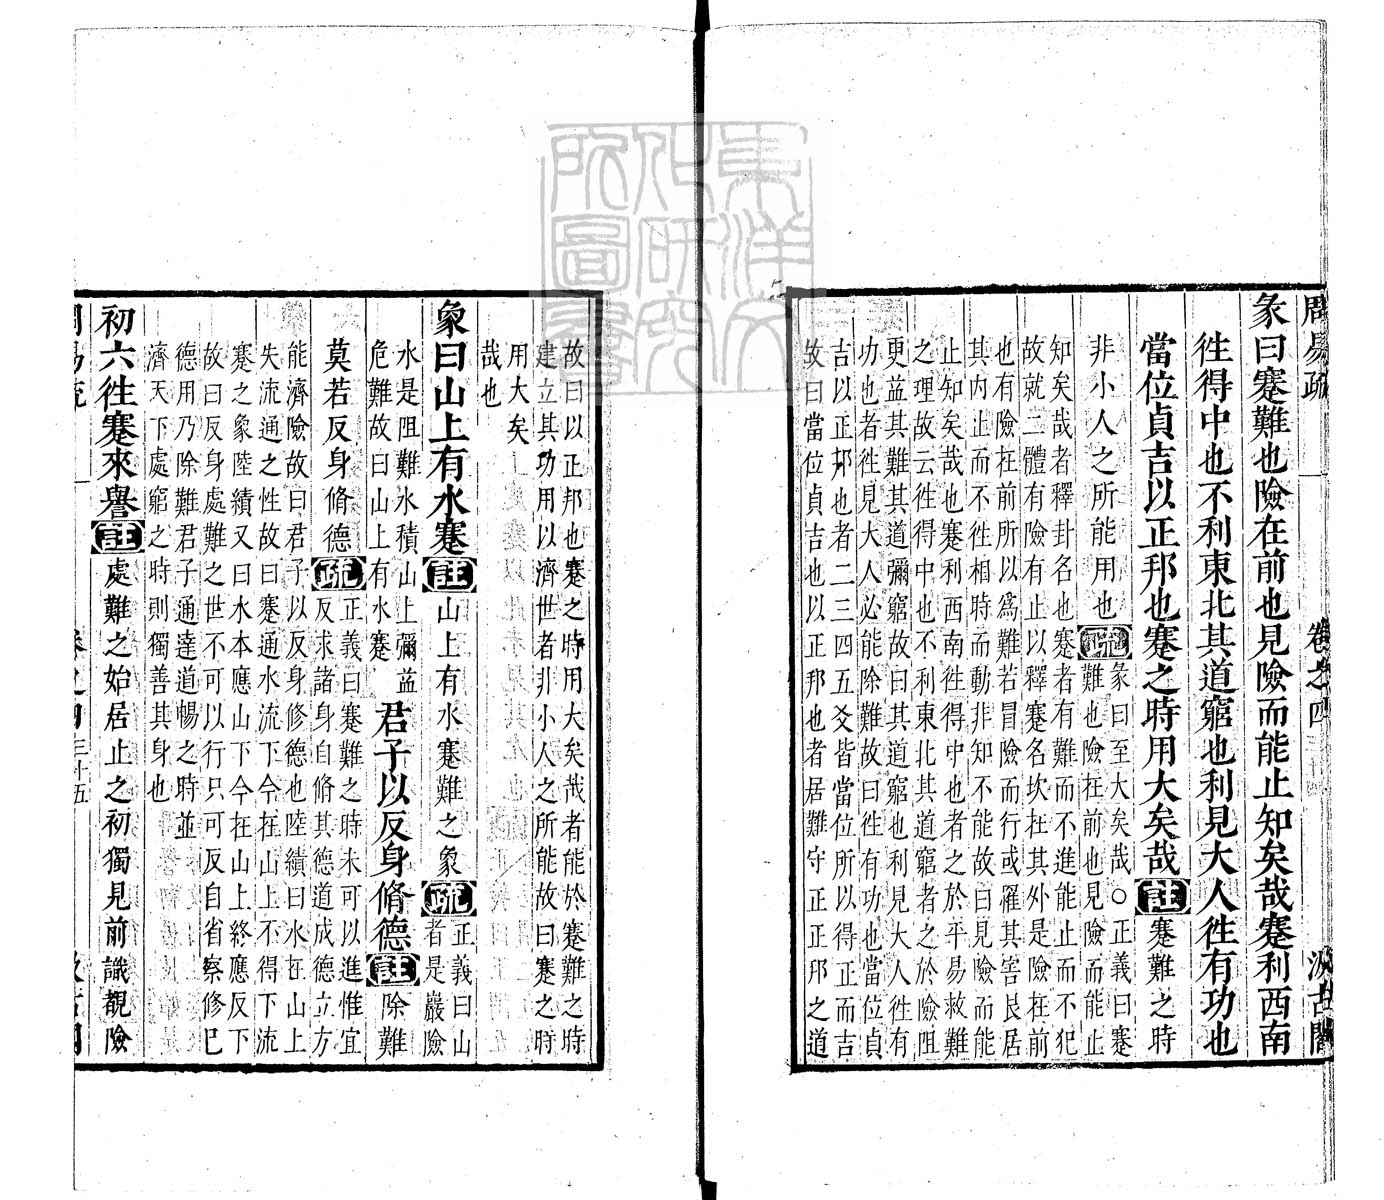 周易疏 卷之四 三十四 汲古閣
彖曰蹇難也險在前也見險而能止知矣哉蹇利西南
徃得中也不利東北其道窮也利見大人徃有功也
當位貞吉以正邦也蹇之時用大矣哉註蹇難之時
非小人之所能用也疏彖曰至大矣哉○正義曰蹇
難也險在前也見險而能止
知矣哉者釋卦名也蹇者有難而不進能止而不犯
故就二體有險有止以釋蹇名坎在其外是險在前
也有險在前所以爲難若冒險而行或罹其害艮居
其內止而不徃相時而動非知不能故曰見險而能
止知矣哉也蹇利西南徃得中也者之於平易救難
之理故云徃得中也不利東北其道窮者之於險阻
更益其難其道彌窮故曰其道窮也利見大人徃有
功也者徃見大人必能除難故曰徃有功也當位貞
吉以正邦也者二三四五爻皆當位所以得正而吉
故曰當位貞吉也以正邦也者居難守正正邦之道
故曰以正邦也蹇之時用大矣哉者能於蹇難之時
建立其功用以濟世者非小人之所能故曰蹇之時
用大矣
哉也
象曰山上有水蹇註山上有水蹇難之象疏正義曰山
者是巖險
水是阻難水積山上彌益
危難故曰山上有水蹇
君子以反身脩德註除難
莫若反身脩德疏正義曰蹇難之時未可以進惟宜
反求諸身自脩其德道成德立方
能濟險故曰君子以反身修德也陸績曰水在山上
失流通之性故曰蹇通水流下今在山上不得下流
蹇之象陸績又曰水本應山下今在山上終應反下
故曰反身處難之世不可以行只可反自省察修已
德用乃除難君子通達道暢之時並
濟天下處窮之時則獨善其身也
初六徃蹇來譽註處難之始居止之初獨見前識覩險
周易疏 卷之四 三十五 汲古閣
東洋文化研究所圖書